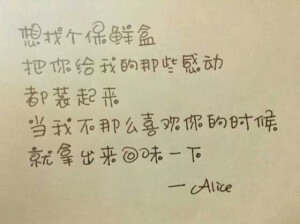 想找个保鲜盒
把你给我的那些感动
都装起来
当我不那么喜欢你的时候
就拿出来回味一下
— Alice